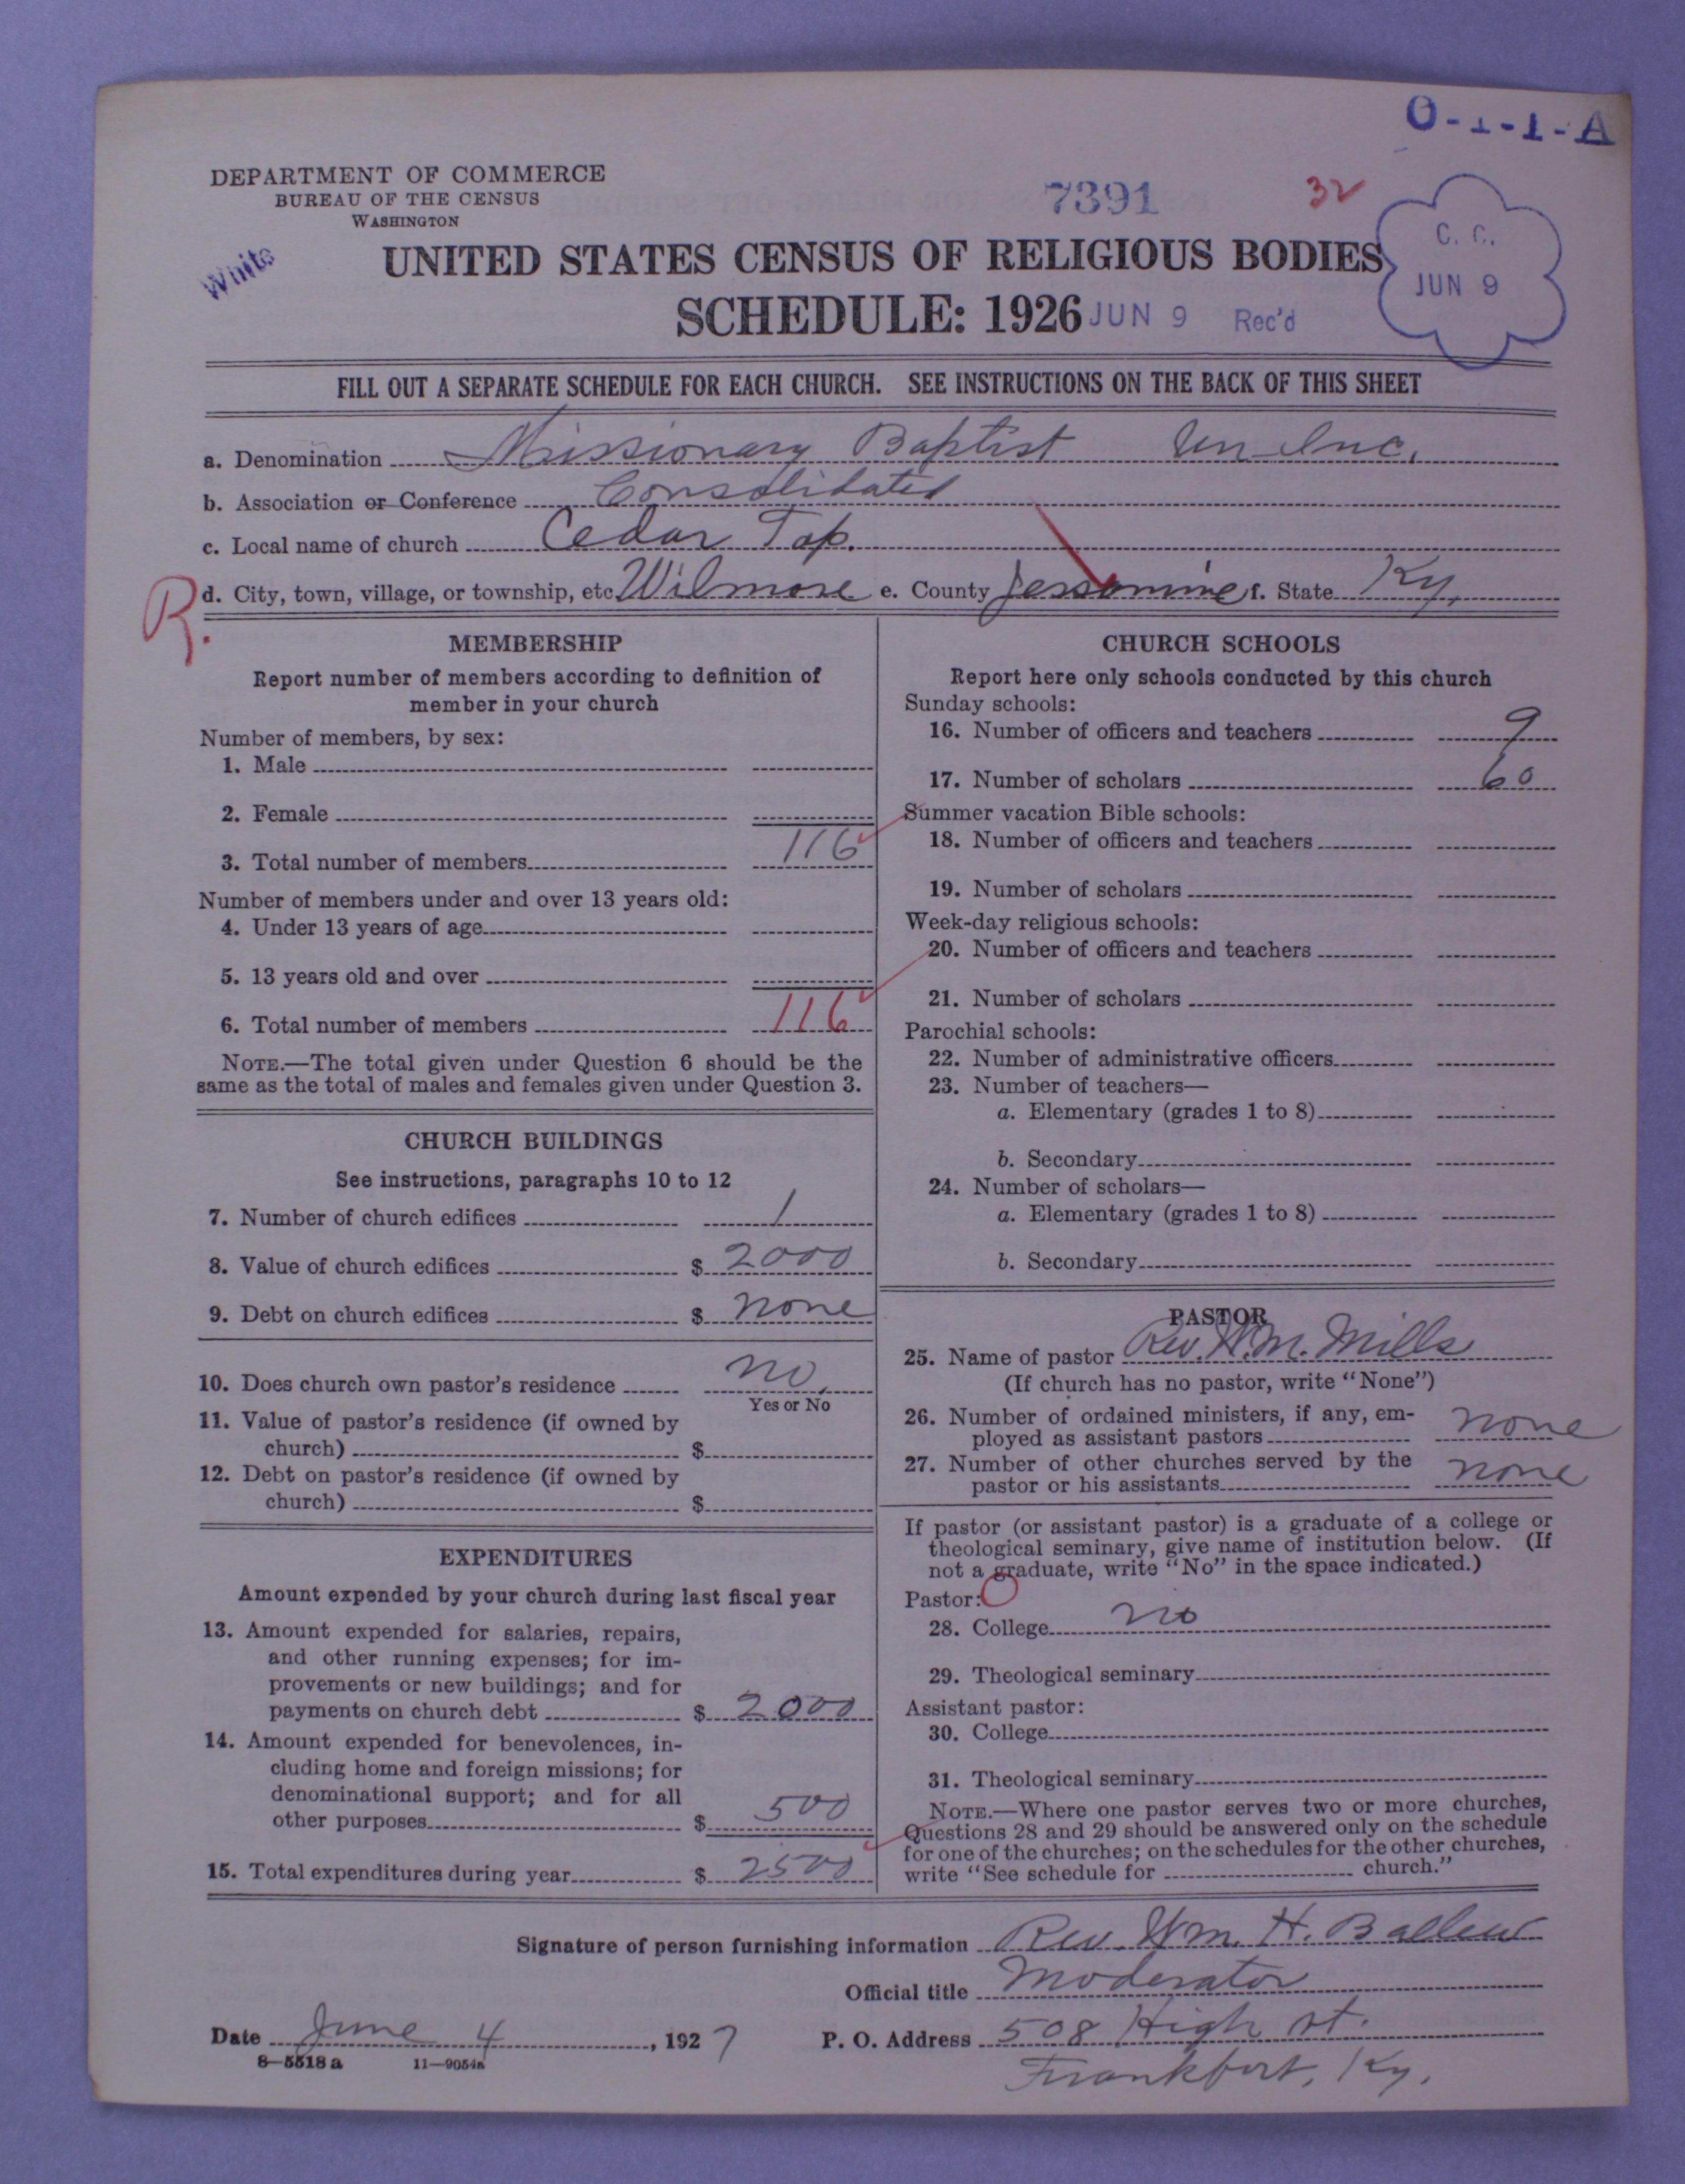 O-1-1-A
DEPARTMENT OF COMMERCE
BUREAU OF THE CENSUS
WASHINGTON
7391
32
White
C. C.
JUN 9
UNITED STATES CENSUS OF RELIGIOUS BODIES
SCHEDULE: 1926
JUN 9 Rec'd
FILL OUT A SEPARATE SCHEDULE FOR EACH CHURCH. SEE INSTRUCTIONS ON THE BACK OF THIS SHEET
a. Denomination Missionary Baptist Un-Inc.
b. Association or Conference Consolidated
c. Local name of church Cedar Top.
R.
d. City, town, village, or township, etc. Wilmore e. County Jessamine f. State Ky.
MEMBERSHIP
Report number of members according to definition of
member in your church
Number of members, by sex:
1. Male
2. Female
3. Total number of members 116
Number of members under and over 13 years old:
4. Under 13 years of age
5. 13 years old and over
6. Total number of members 116
NOTE.—The total given under Question 6 should be the
same as the total of males and females given under Question 3.
CHURCH BUILDINGS
See instructions, paragraphs 10 to 12
7. Number of church edifices 1
8. Value of church edifices $ 2000
9. Debt on church edifices $ none
10. Does church own pastor's residence no.
Yes or No
11. Value of pastor's residence (if owned by
church) $
12. Debt on pastor's residence (if owned by
church) $
EXPENDITURES
Amount expended by your church during last fiscal year
13. Amount expended for salaries, repairs,
and other running expenses; for im-
provements or new buildings; and for
payments on church debt $ 2000
14. Amount expended for benevolences, in-
cluding home and foreign missions; for
denominational support; and for all
other purposes $ 500
15. Total expenditures during year $ 2500
CHURCH SCHOOLS
Report here only schools conducted by this church
Sunday schools:
16. Number of officers and teachers 9
17. Number of scholars 60
Summer vacation Bible schools:
18. Number of officers and teachers
19. Number of scholars
Week-day religious schools:
20. Number of officers and teachers
21. Number of scholars
Parochial schools:
22. Number of administrative officers
23. Number of teachers—
a. Elementary (grades 1 to 8)
b. Secondary
24. Number of scholars—
a. Elementary (grades 1 to 8)
b. Secondary
PASTOR
25. Name of pastor Rev. W.M. Mills
(If church has no pastor, write "None")
26. Number of ordained ministers, if any, em-
ployed as assistant pastors none
27. Number of other churches served by the
pastor or his assistants none
If pastor (or assistant pastor) is a graduate of a college or
theological seminary, give name of institution below. (If
not a graduate, write "No" in the space indicated.)
Pastor:
28. College no
29. Theological seminary
Assistant pastor:
30. College
31. Theological seminary
NOTE.—Where one pastor serves two or more churches,
Questions 28 and 29 should be answered only on the schedule
for one of the churches; on the schedules for the other churches,
write "See schedule for church."
Signature of person furnishing information Rev. Wm. H. Ballew
Official title Moderator
Date June 4, 1927 P. O. Address 508 High St.
8—5518 a 11—9054a
Frankfort, Ky.